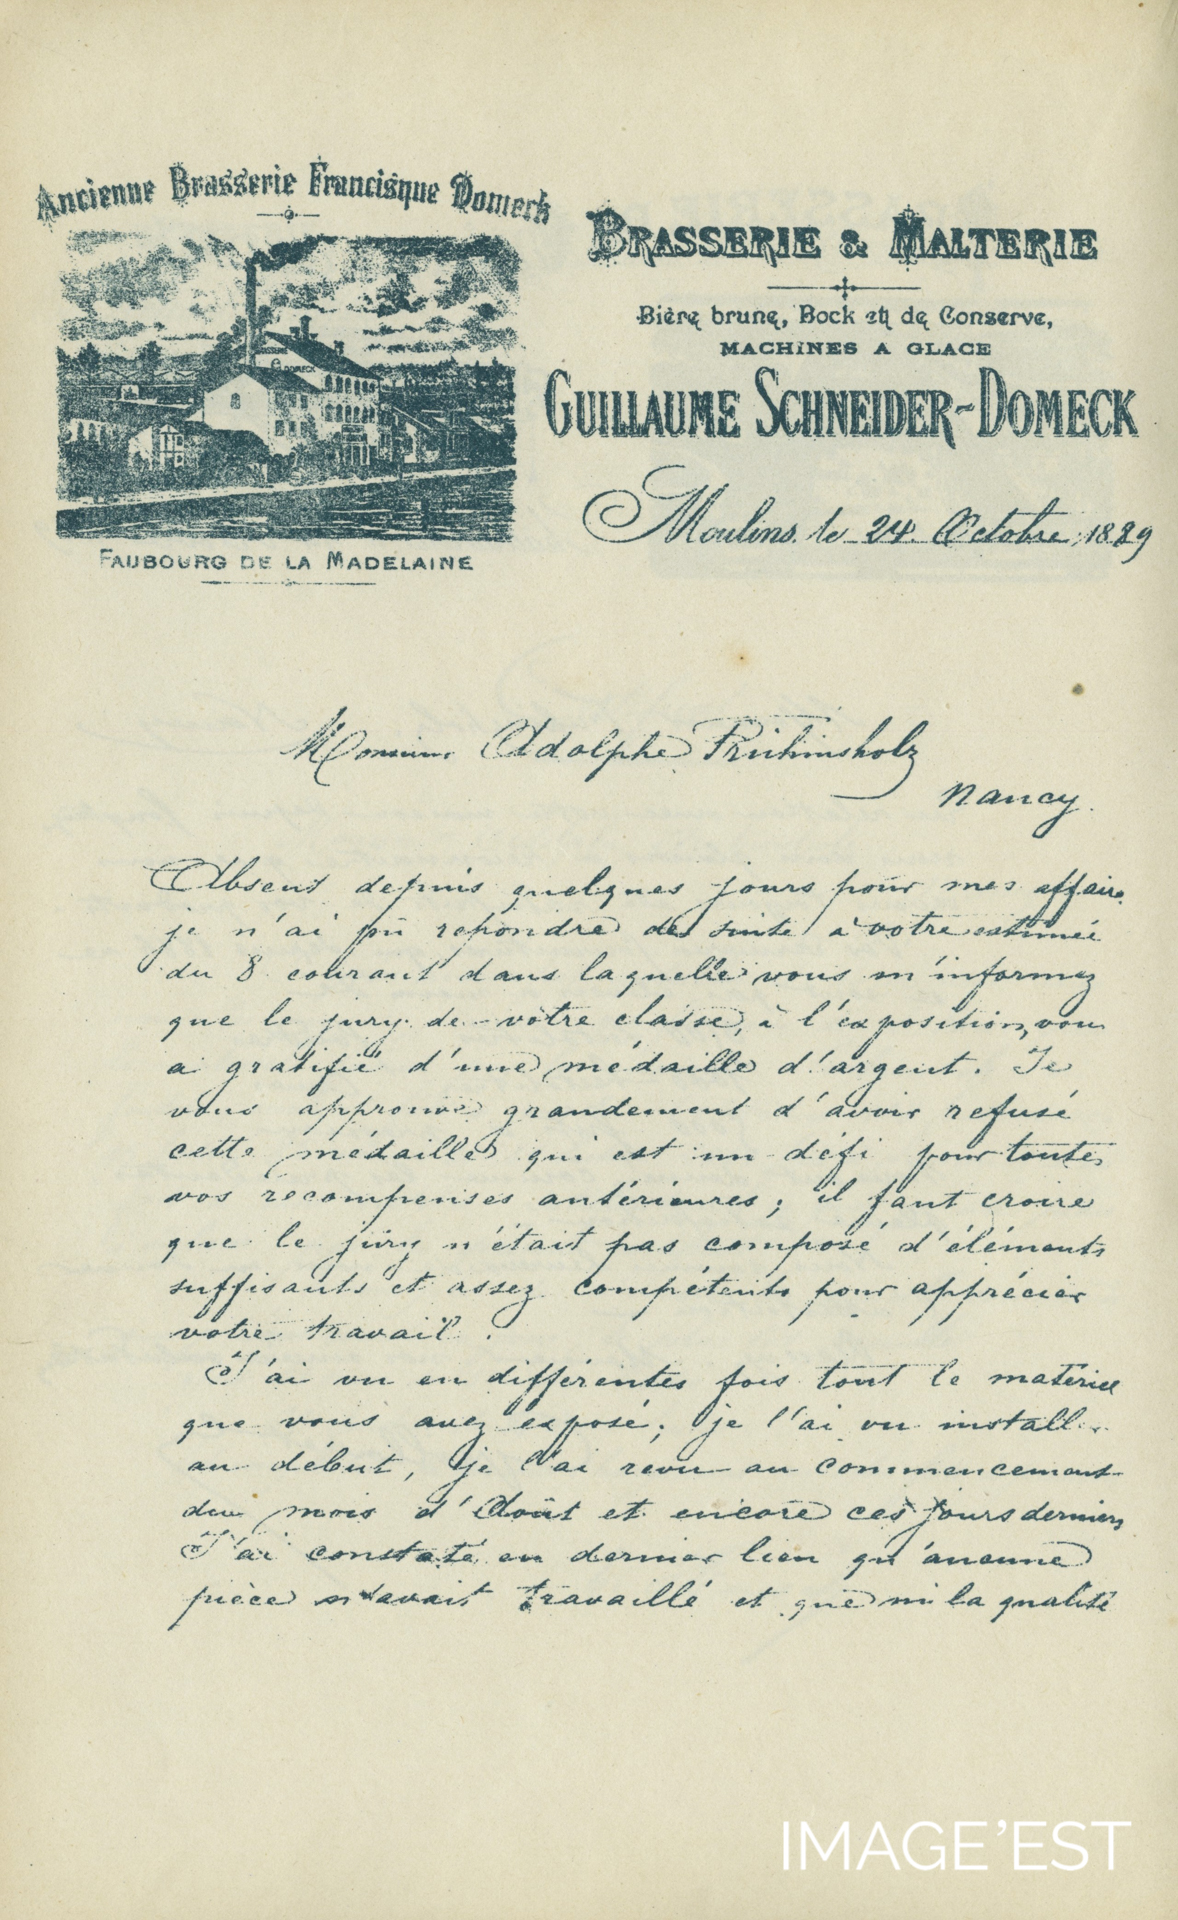 Ancienne Brasserie Francisque Domeck
FAUBOURG DE LA MADELAINE
BRASSERIE & MALTERIE
Bière brune, Bock et de Conserve,
MACHINES A GLACE
GUILLAUME SCHNEIDER-DOMECK
Moulins, le 24 Octobre 1889
Monsieur Adolphe Frühinsholz
Nancy.
Absent depuis quelques jours pour mes affaires
je n'ai pû repondre de suite à votre estimée
du 8 courant dans laquelle vous m'informez
que le jury de votre classe, à l'exposition, vous
a gratifié d'une médaille d'argent. Je
vous approuve grandement d'avoir refusé
cette médaille qui est un défi pour toutes
vos récompenses antérieures ; il faut croire
que le jury n'était pas composé d'éléments
suffisants et assez compétents pour apprécier
votre travail.
J'ai vu en différentes fois tout le matériel
que vous avez exposé ; je l'ai vu installer
au début, je l'ai revu au commencement
du mois d'Août et encore ces jours derniers
J'ai constaté en dernier lieu qu'aucune
pièce n'avait travaillé et que ni la qualité
IMAGE'EST